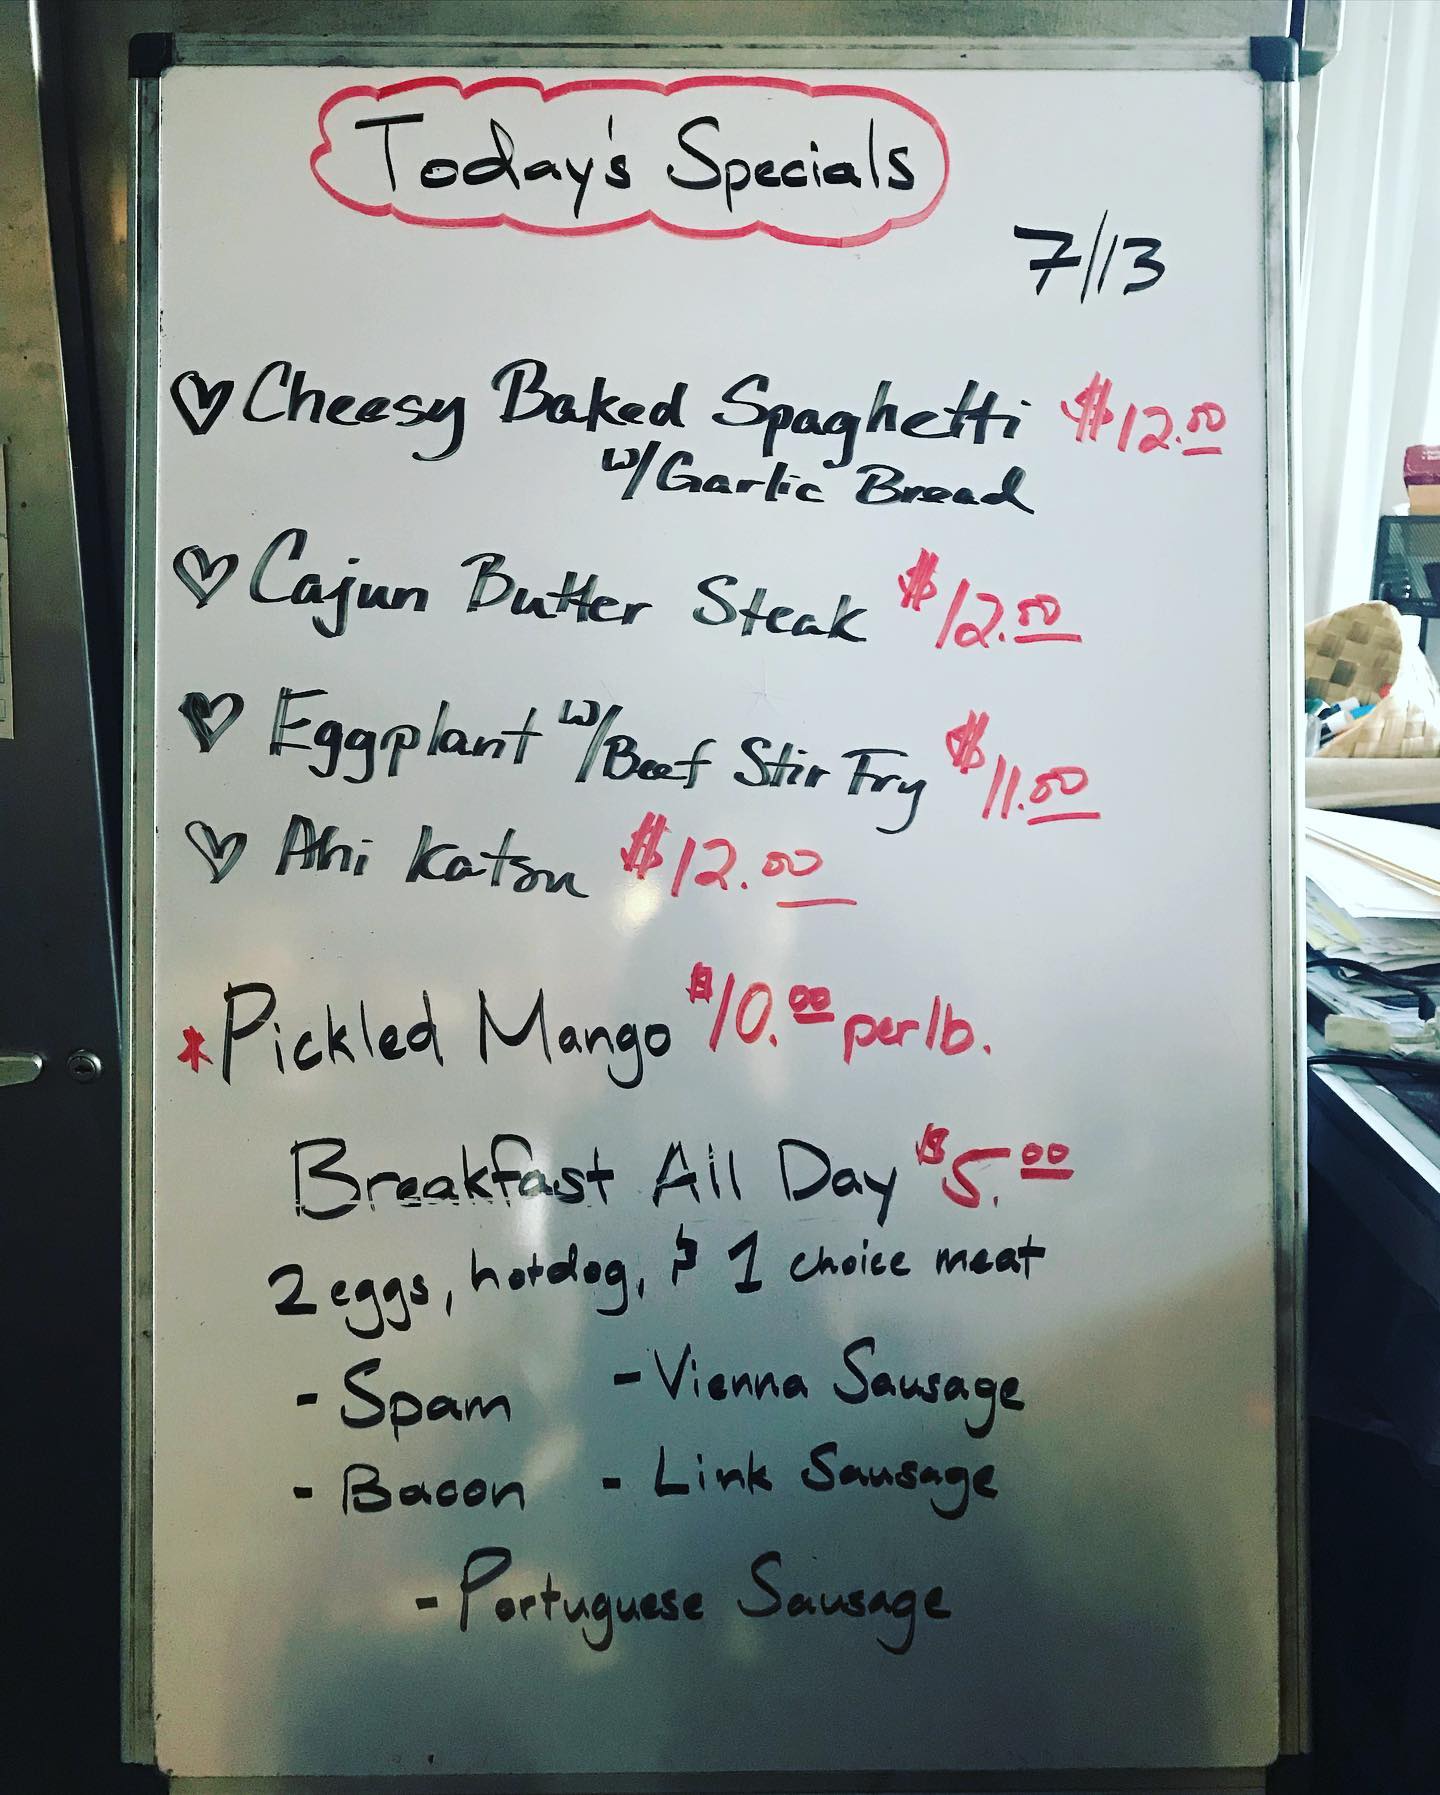 Today's Specials
7/13
♡ Cheesy Baked Spaghetti $12.00
w/Garlic Bread
♡ Cajun Butter Steak $12.00
♡ Eggplant w/Beef Stir Fry $11.00
♡ Ahi Katsu $12.00
*Pickled Mango $10.00 per lb.
Breakfast All Day $5.00
2 eggs, hotdog, & 1 choice meat
- Spam - Vienna Sausage
- Bacon - Link Sausage
- Portuguese Sausage